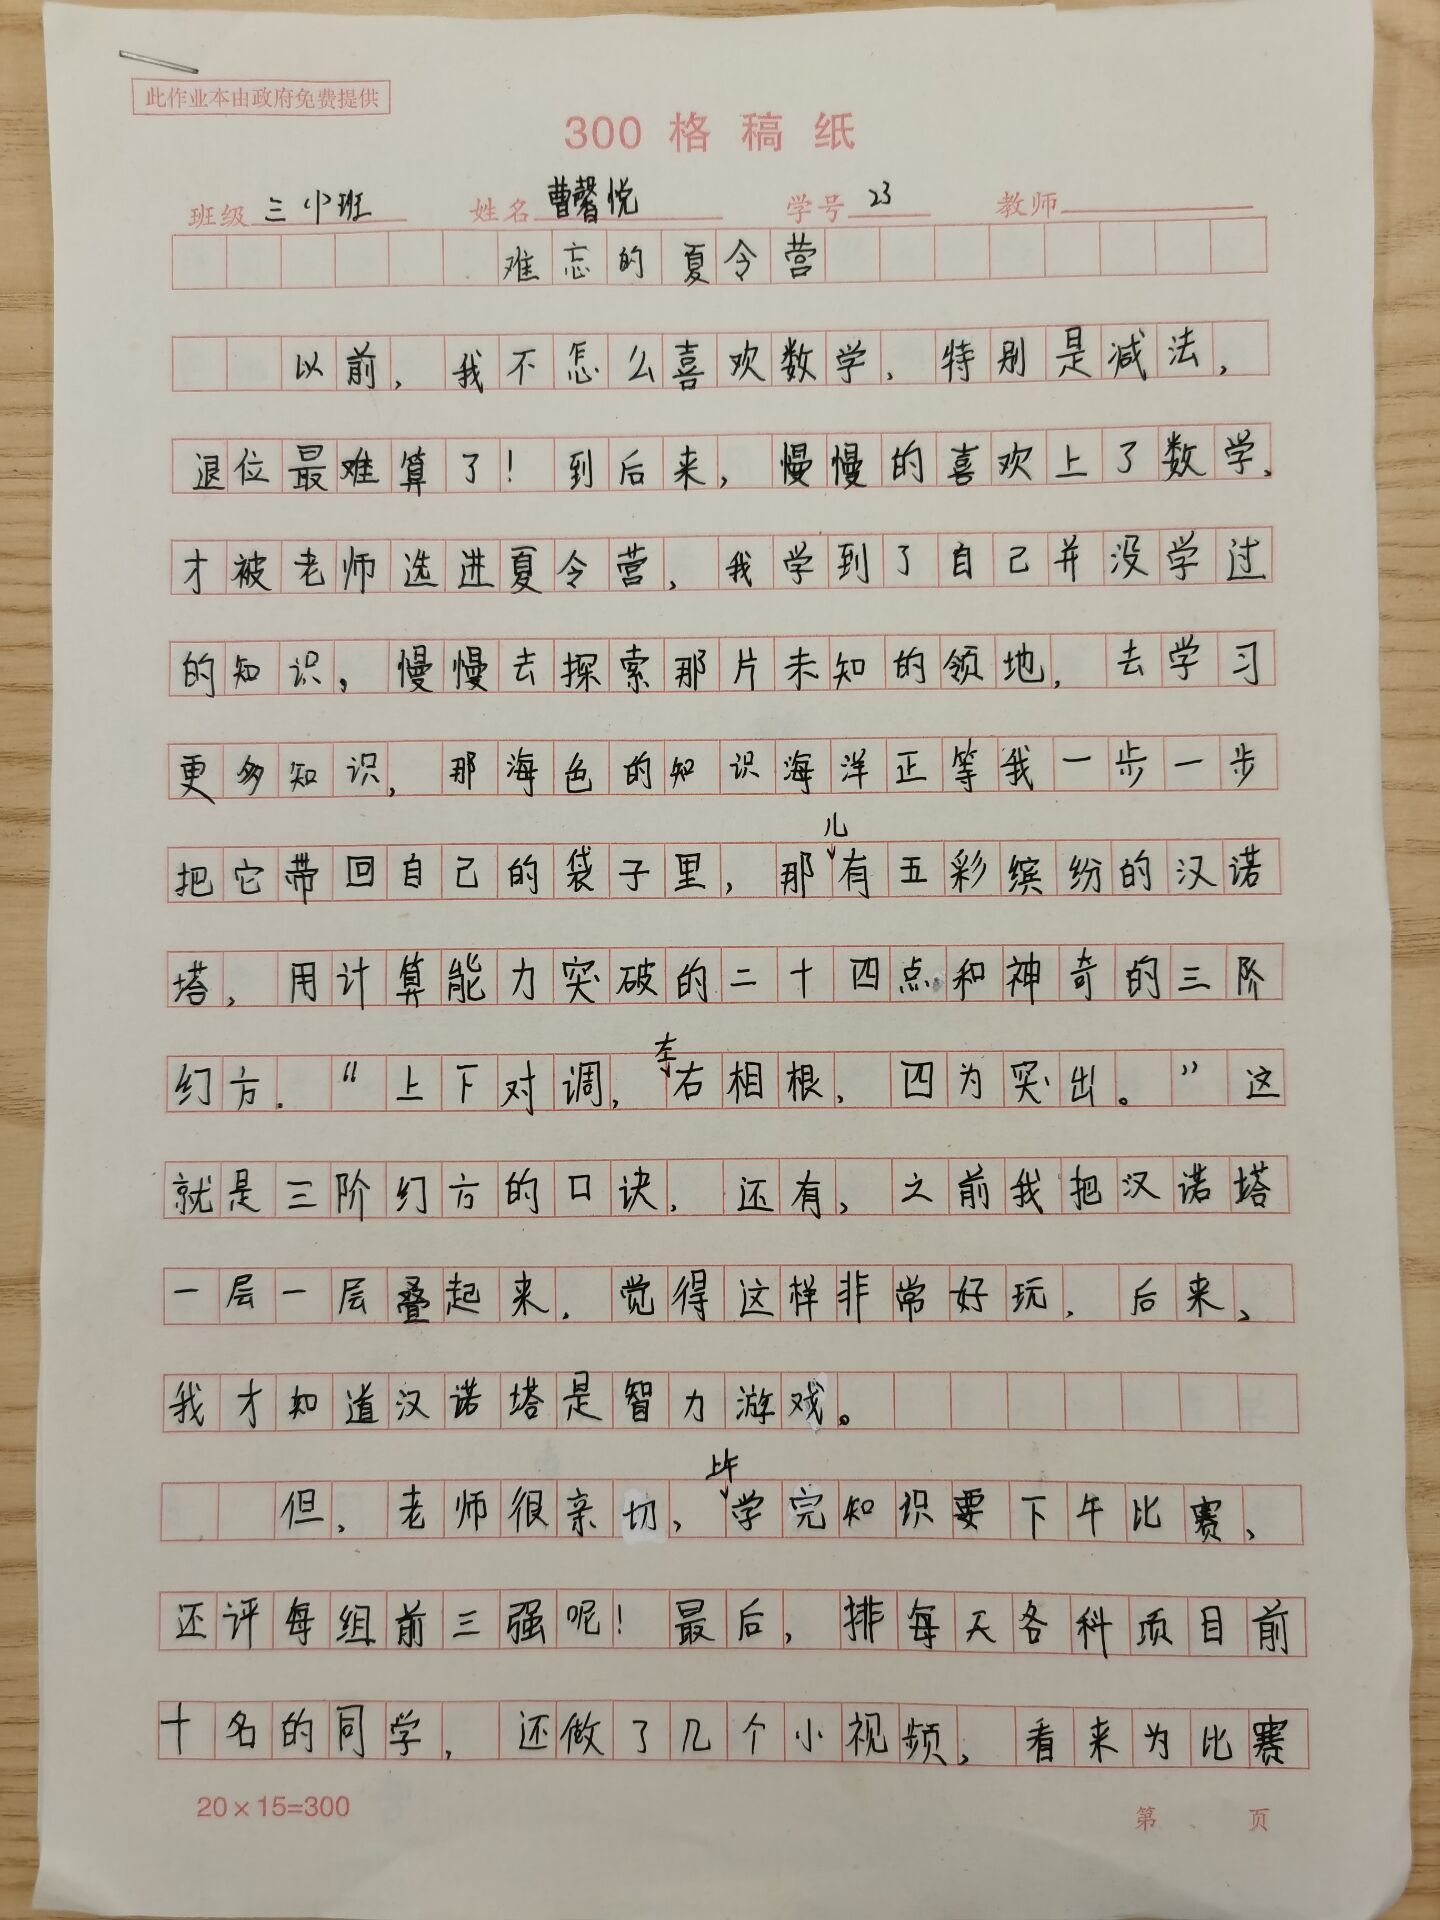 此作业本由政府免费提供
300 格 稿 纸
班级 三(1)班 姓名 曹馨悦 学号 23 教师
难忘的夏令营
以前，我不怎么喜欢数学，特别是减法，
退位最难算了！到后来，慢慢的喜欢上了数学，
才被老师选进夏令营，我学到了自己并没学过
的知识，慢慢去探索那片未知的领地，去学习
更多知识，那海色的知识海洋正等我一步一步
把它带回自己的袋子里，那儿有五彩缤纷的汉诺
塔，用计算能力突破的二十四点和神奇的三阶
幻方．“上下对调，左右相根，四为突出。”这
就是三阶幻方的口诀，还有，之前我把汉诺塔
一层一层叠起来，觉得这样非常好玩，后来，
我才知道汉诺塔是智力游戏。
但，老师很亲切，上午学完知识要下午比赛，
还评每组前三强呢！最后，排每天各科项目前
十名的同学，还做了几个小视频，看来为比赛
20×15=300
第 页